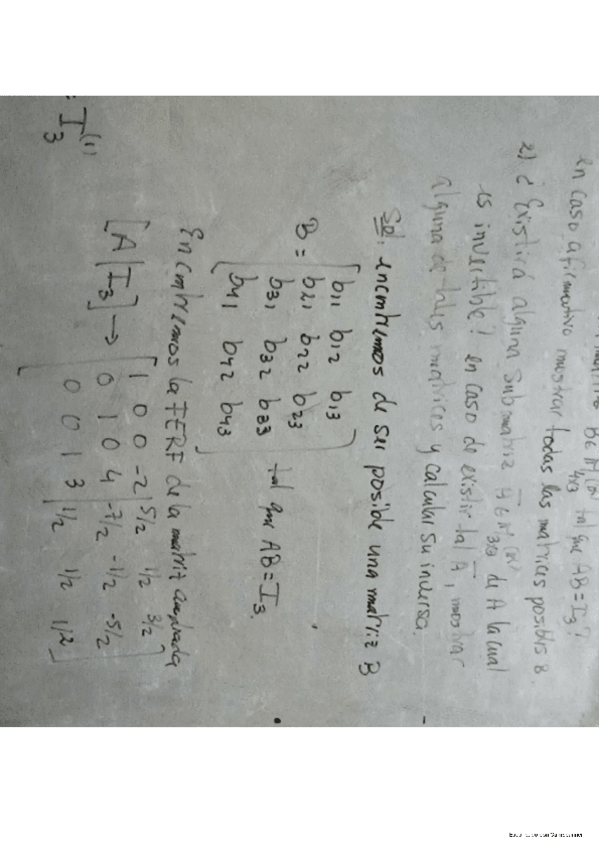 en caso afirmativo mostrar todas las matrices posibles B.
B ∈ M4x3(ℝ) tal que AB = I3?
2) ¿Existirá alguna submatriz Ā ∈ M3x3(ℝ) de A la cual
es invertible? en caso de existir tal Ā, mostrar
alguna de tales matrices y calcular su inversa.
Sol. encontremos de ser posible una matriz B
B = [ b11 b12 b13
b21 b22 b23
b31 b32 b33
b41 b42 b43 ] tal que AB = I3.
Encontremos la FERF de la matriz ampliada
[A | I3] → [ 1 0 0 -2 | 5/2 1/2 3/2
0 1 0 4 | -7/2 -1/2 -5/2
0 0 1 3 | 1/2 1/2 1/2 ]
= I3 (1)